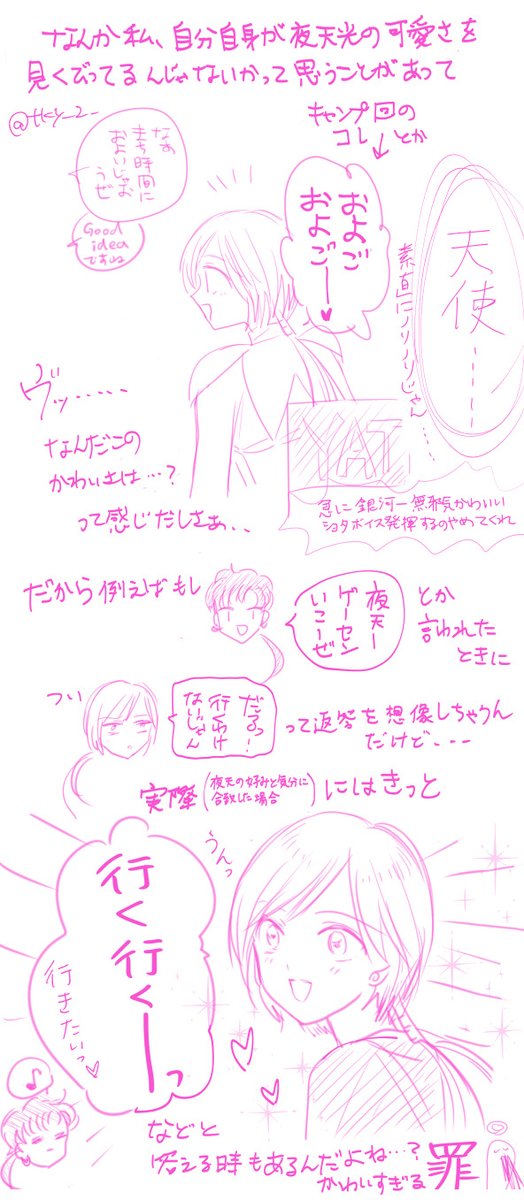 なんか私、自分自身が夜天光の可愛さを
見くびってるんじゃないかって思うことがあって
@tky_2_
キャンプ回の
コレ とか
なあ
待ち時間に
およいじゃお
うぜ
Good
idea
ですね
およご
およごー♥
天使……
素直にノリノリじゃん……
YAT
急に銀河一無邪気かわいい
ショタボイス発揮するのやめてくれ
ヴッ……
なんだこの
かわいさは…?
って感じだしさぁ、、
だから例えばもし
夜天ー
ゲーセン
いこーぜ
とか
言われた
ときに
つい
だるっ!
行くわけ
ないじゃん
って返答を想像しちゃうん
だけど、、、
実際(夜天の好みと気分に
合致した場合)にはきっと
うんっ
行く行くーっ
行きたいっ♡
♪
などと
答える時もあるんだよね…?
かわいすぎる罪